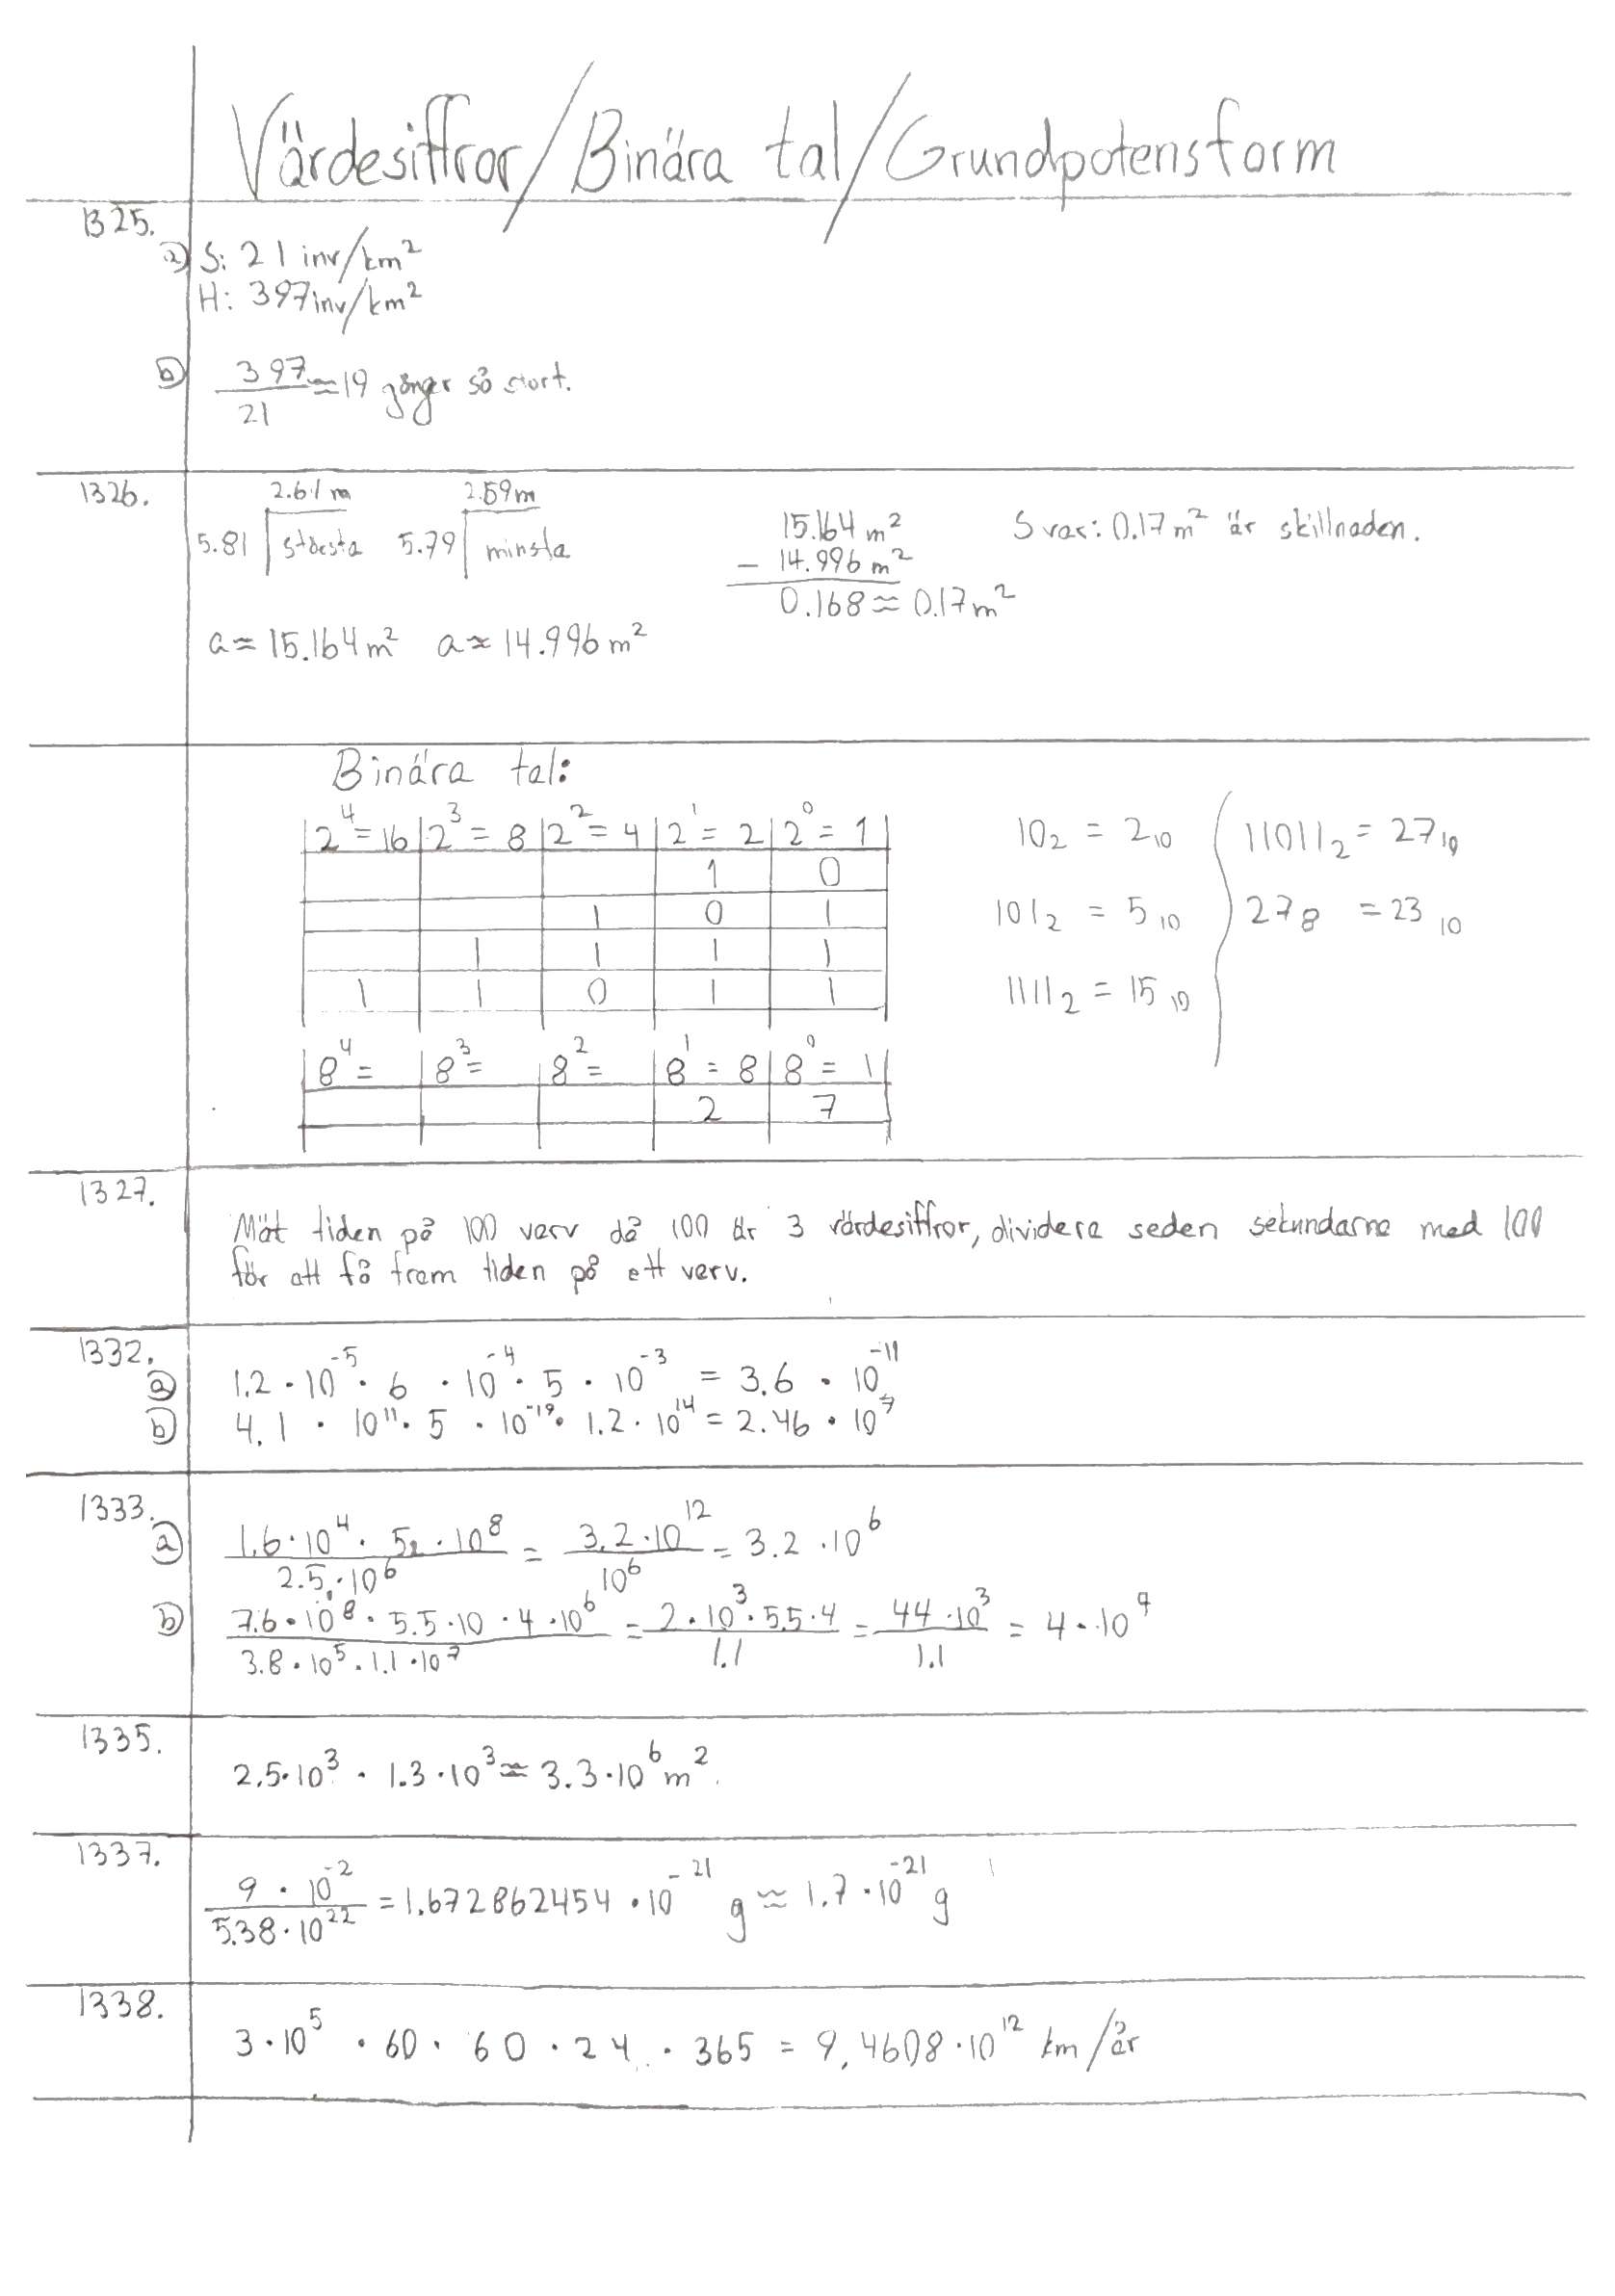 Värdesiffror/Binära tal/Grundpotensform
1325.
a) S: 21 inv/km²
H: 397inv/km²
b) 397/21 ≈ 19 gånger så stort.
1326.
2.61 m 2.59m
5.81 största 5.79 minsta
15.164 m²
- 14.996 m²
0.168 ≈ 0.17m²
Svar: 0.17m² är skillnaden.
a ≈ 15.164m² a ≈ 14.996m²
Binära tal:
2⁴=16 2³=8 2²=4 2¹=2 2⁰=1
1 0
1 0 1
1 1 1 1
1 1 0 1 1
8⁴= 8³= 8²= 8¹=8 8⁰=1
2 7
10₂ = 2₁₀
101₂ = 5₁₀
1111₂ = 15₁₀
11011₂ = 27₁₀
27₈ = 23₁₀
1327.
Mät tiden på 100 varv då 100 är 3 värdesiffror, dividera sedan sekundarna med 100
för att få fram tiden på ett varv.
1332.
a) 1.2 · 10⁻⁵ · 6 · 10⁻⁴ · 5 · 10⁻³ = 3.6 · 10⁻¹¹
b) 4.1 · 10¹¹ · 5 · 10⁻¹⁹ · 1.2 · 10¹⁴ = 2.46 · 10⁷
1333.
a) 1.6·10⁴ · 5 · 10⁸ / 2.5 · 10⁶ = 3.2·10¹² / 10⁶ = 3.2 · 10⁶
b) 7.6 · 10⁸ · 5.5 · 10 · 4 · 10⁶ / 3.8 · 10⁵ · 1.1 · 10⁷ = 2 · 10³ · 5.5 · 4 / 1.1 = 44 · 10³ / 1.1 = 4 · 10⁴
1335.
2.5·10³ · 1.3 · 10³ ≈ 3.3 · 10⁶ m².
1337.
9 · 10⁻² / 5.38 · 10²² = 1.672862454 · 10⁻²¹ g ≈ 1.7 · 10⁻²¹ g
1338.
3 · 10⁵ · 60 · 60 · 24 · 365 = 9,4608 · 10¹² km/år